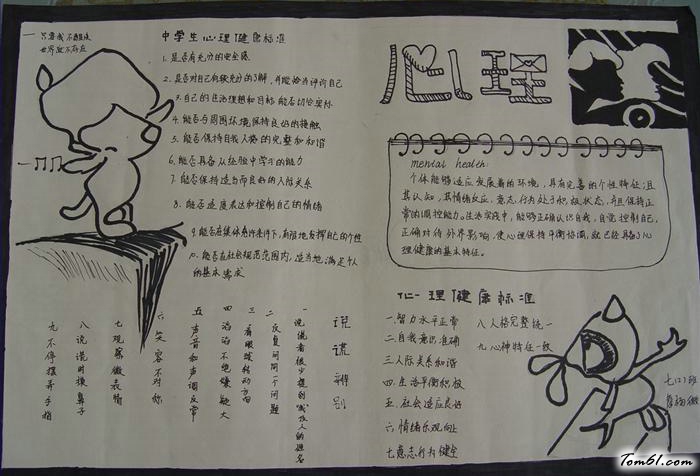 中学生心理健康标准
1. 是否有充分的安全感
2. 是否对自己有较充分的了解,并能恰当评价自己
3. 自己的生活理想和目标能否切合实际
4. 能否与周围环境保持良好的接触
5. 能否保持自我人格的完整和和谐
6. 能否具备从经验中学习的能力
7. 能否保持适当而良好的人际关系
8. 能否适度表达和控制自己的情绪
9. 能否在集体允许条件下,有限地发挥自己的个性
10. 能否在社会规范范围内,适当地满足个人
的基本需求
说谎辨别
一 说谎者很少提到
二 反复问同一个问题
三 看眼球转动方向
四 滔滔不绝
五 声音和声调反常
六 笑容不对称
七 观察微表情
八 说谎时摸鼻子
九 不停摆弄手指
心理
mental health
个体能够适应发展着的环境,具有完善的个性特征;且
其认知,其情绪反应,意志行为处于积极状态,并且保持正
常的调控能力。生活实践中,能够正确认识自我,自觉控制自己,
正确对待外界影响,使心理保持平衡协调,就已经具备了心
理健康的基本特征。
心理健康标准
一.智力水平正常
二.自我意识准确
三.人际关系和谐
四.生活平衡积极
五.社会适应良好
六.情绪乐观向上
七.意志行为健全
八 人格完整统一
九 心神特征一致
七(2)班
Tom61.com